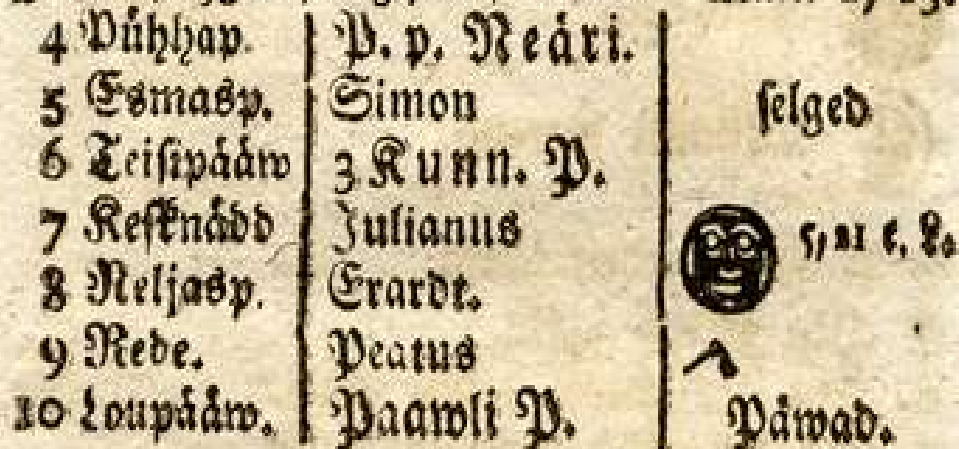 4 Pühhap. P. p. Neäri.
5 Esmasp. Simon selged
6 Teisipääw 3 Kunn. P.
7 Kesknädd Julianus 5, 21 e. L.
8 Neljasp. Erardt.
9 Rede. Peatus
10 Loupääw. Paawli P. Päwad.